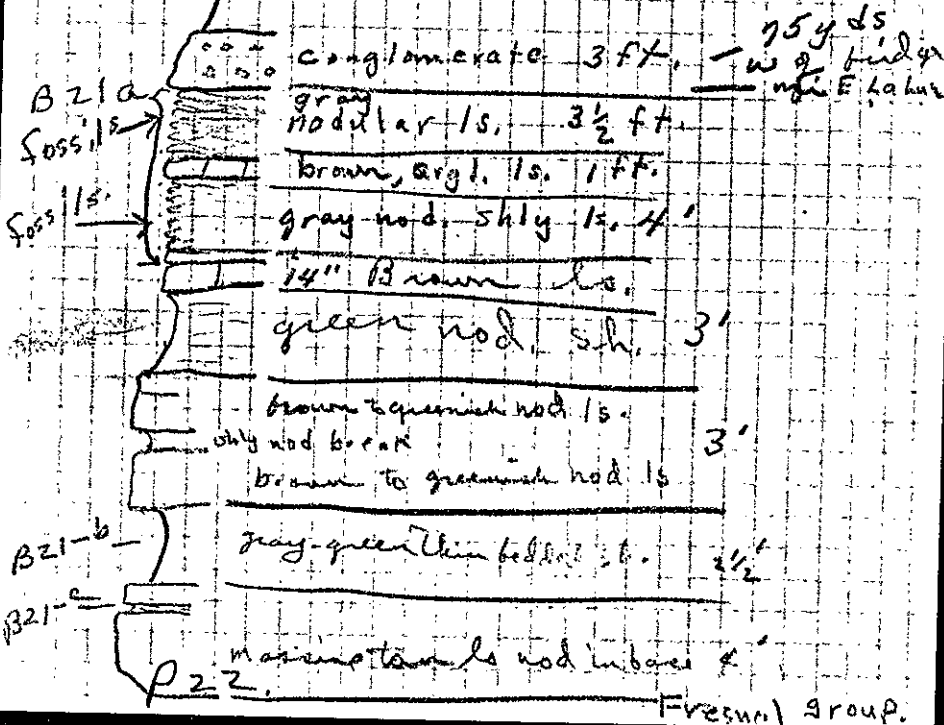 75 yds
conglomerate 3 ft. - w of bridge
B21a
gray
nodular ls. 3½ ft.
fossils
brown, argl. ls. 1 ft.
fossils.
gray nod. shly ls. 4'
14" Brown ls.
green nod. sh. 3'
brown to greenish nod ls.
shly nod break 3'
brown to greenish nod ls
B21-b
gray-green thin bedded sh. 2½'
B21-c
massive tan ls nod in base 4'
P22.
Fresnal group.